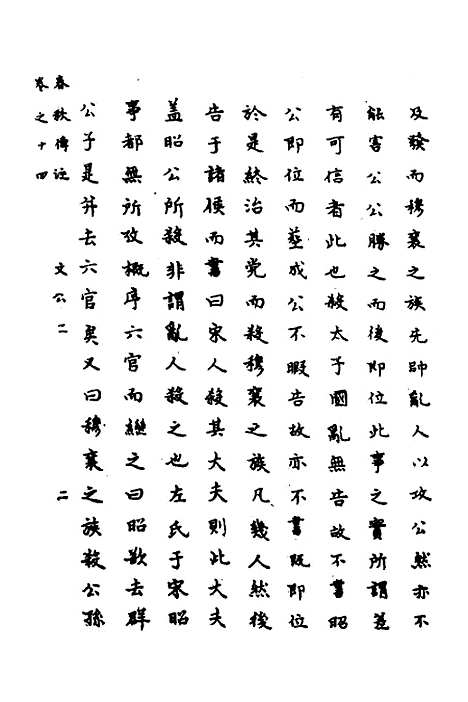 及發而穆襄之族先帥亂人以攻公然亦不
能害公公勝之而後即位此事之實所謂差
有可信者此也殺太子國亂無告故不書昭
公即位而塟成公不暇告故亦不書既即位
於是終治其党而殺穆襄之族凡幾人然後
告于諸侯而書曰宋人殺其大夫則此大夫
盖昭公所殺非謂亂人殺之也左氏于宋昭
事都無所攷概序六官而繼之曰昭欲去群
公子是并去六官矣又曰穆襄之族殺公孫
春秋傳 文公二 二
卷之十四